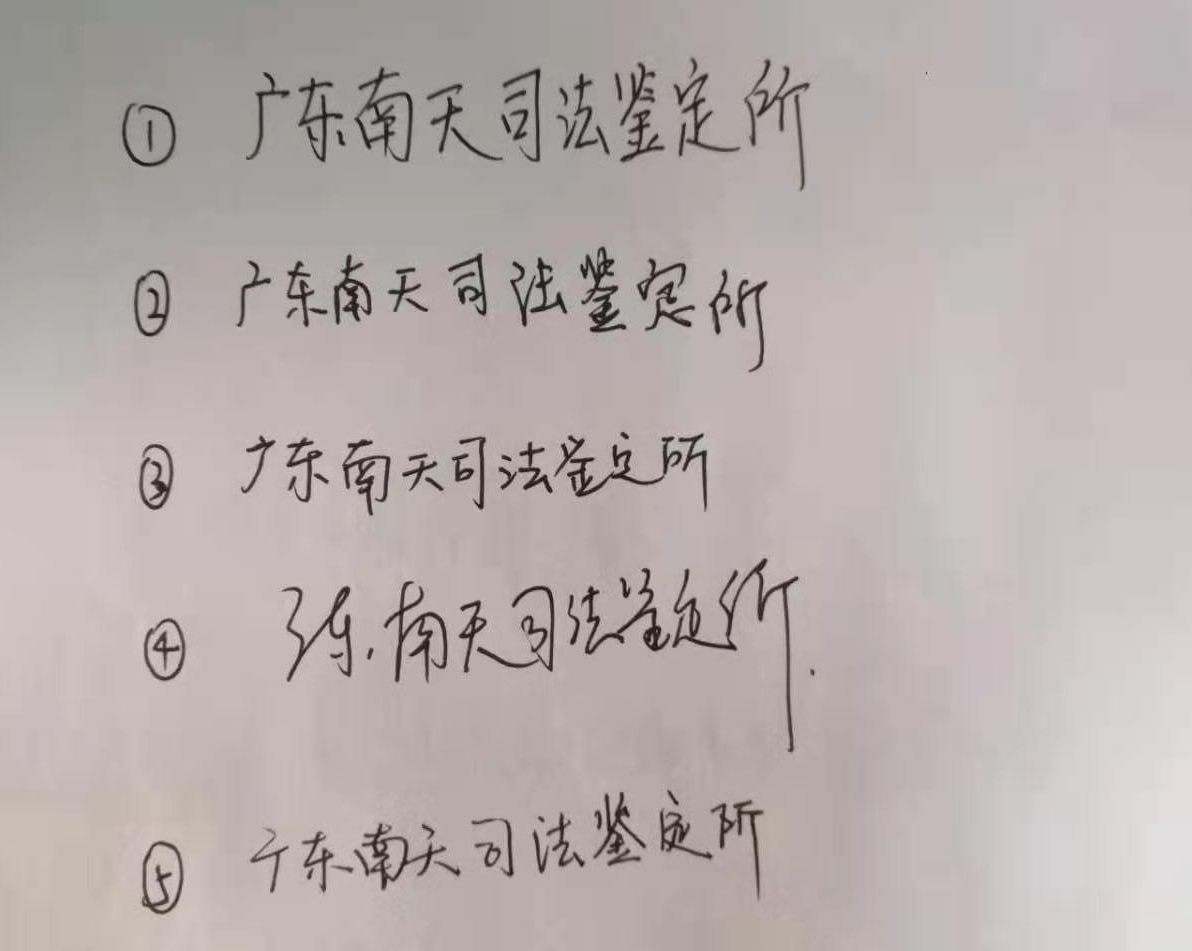 ① 广东南天司法鉴定所
② 广东南天司法鉴定所
③ 广东南天司法鉴定所
④ 广东南天司法鉴定所.
⑤ 广东南天司法鉴定所